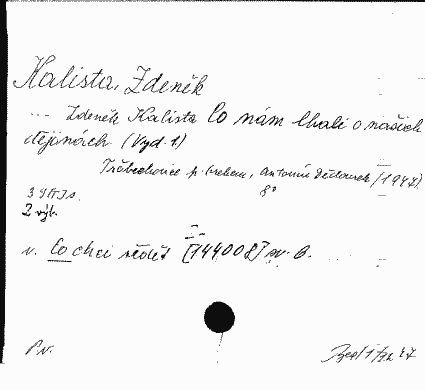 Kalista, Zdeněk
... Zdeněk Kalista Co nám lhali o našich
dějinách. (Vyd. 1)
Třebechovice p. Orebem, Antonín Dědourek /1947/.
8°
2 výt.
v. Co chci vědět [144008] sv. 6.
P.v.